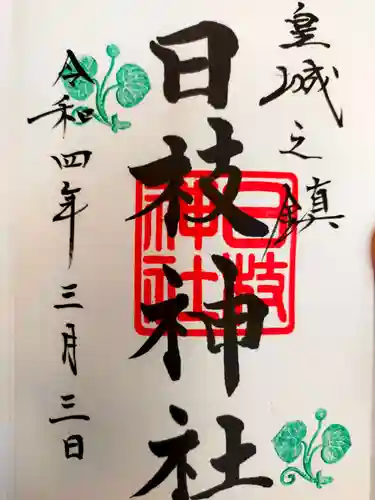 皇城之鎮
日枝神社
日枝
神社
令和四年三月三日